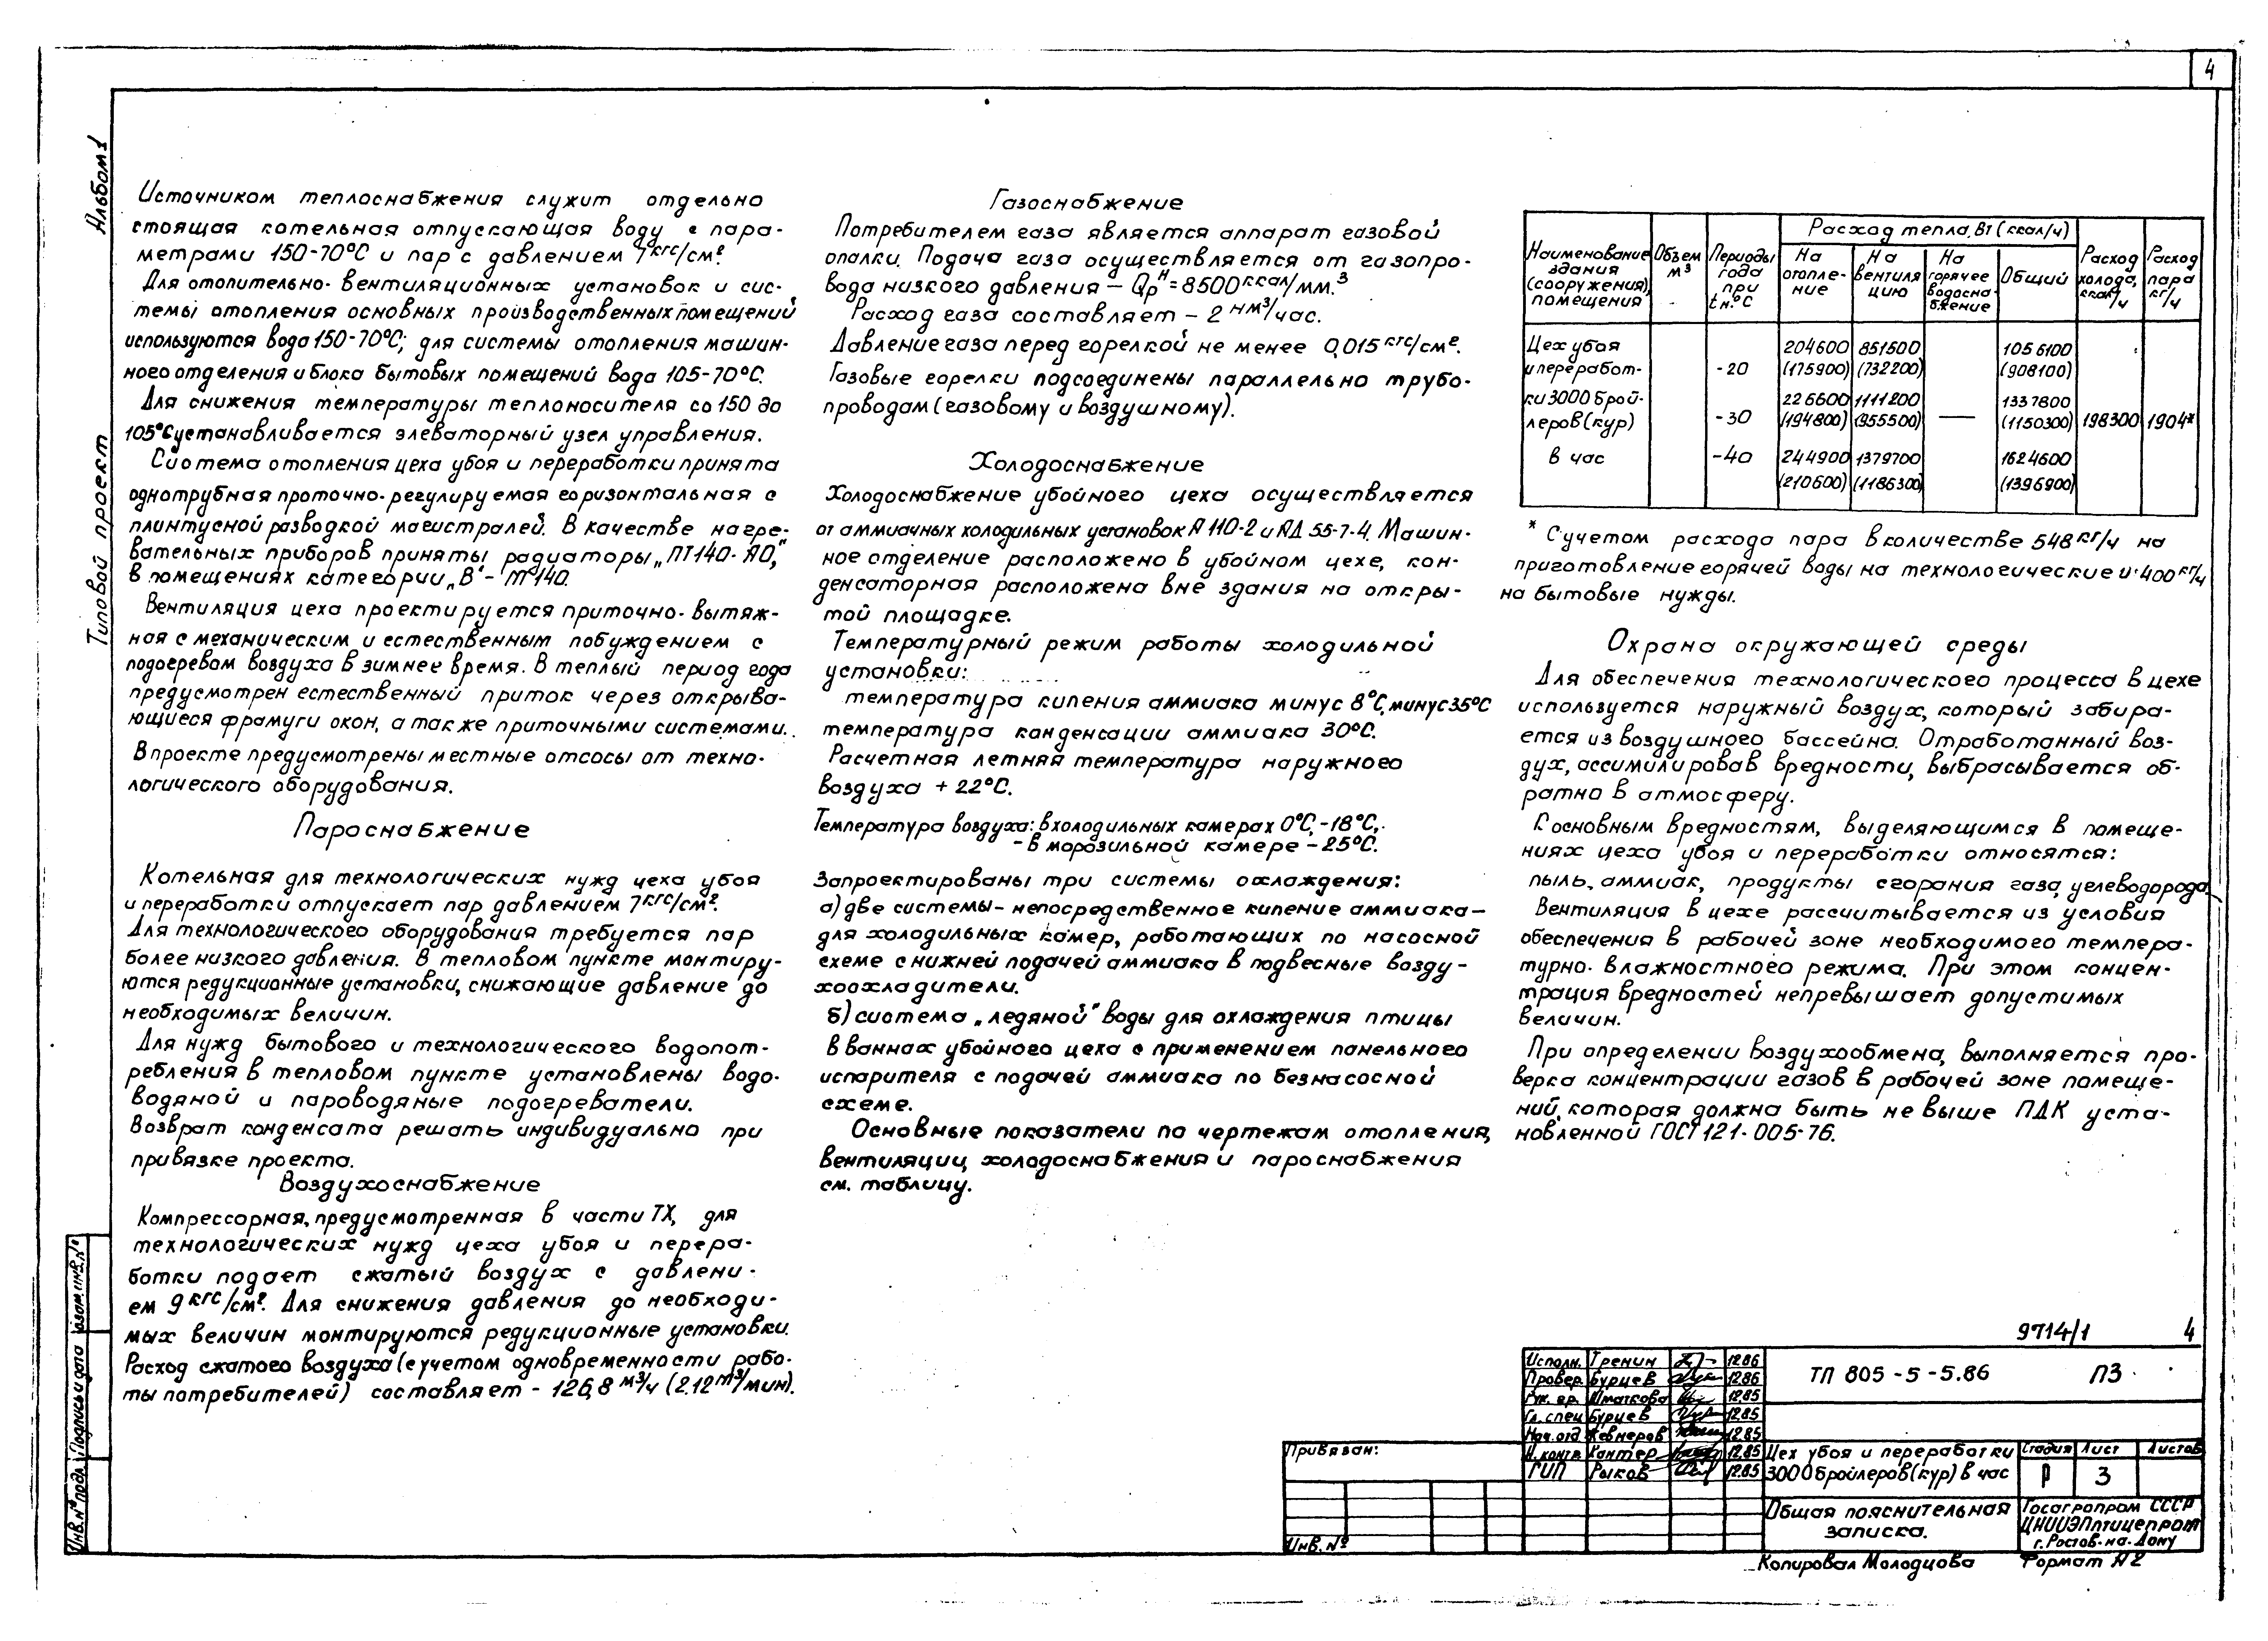 4
Альбом 1
Типовой проект
Источником теплоснабжения служит отдельно
стоящая котельная отпускающая воду с пара-
метрами 150-70°С и пар с давлением 7 кгс/см².
Для отопительно-вентиляционных установок и сис-
темы отопления основных производственных помещений
используются вода 150-70°С; для системы отопления машин-
ного отделения и блока бытовых помещений вода 105-70°С.
Для снижения температуры теплоносителя со 150 до
105°С устанавливается элеваторный узел управления.
Система отопления цеха убоя и переработки принята
однотрубная проточно-регулируемая горизонтальная с
плинтусной разводкой магистралей. В качестве нагре-
вательных приборов приняты радиаторы „ПТ140-АО,"
в помещениях категории „В" - М140.
Вентиляция цеха проектируется приточно-вытяж-
ная с механическим и естественным побуждением с
подогревом воздуха в зимнее время. В теплый период года
предусмотрен естественный приток через открыва-
ющиеся фрамуги окон, а также приточными системами.
В проекте предусмотрены местные отсосы от техно-
логического оборудования.
Пароснабжение
Котельная для технологических нужд цеха убоя
и переработки отпускает пар давлением 7 кгс/см².
Для технологического оборудования требуется пар
более низкого давления. В тепловом пункте монтиру-
ются редукционные установки, снижающие давление до
необходимых величин.
Для нужд бытового и технологического водопот-
ребления в тепловом пункте установлены водо-
водяной и пароводяные подогреватели.
Возврат конденсата решать индивидуально при
привязке проекта.
Воздухоснабжение
Компрессорная, предусмотренная в части ТХ, для
технологических нужд цеха убоя и перера-
ботки подает сжатый воздух с давлени-
ем 9 кгс/см². Для снижения давления до необходи-
мых величин монтируются редукционные установки.
Расход сжатого воздуха (с учетом одновременности рабо-
ты потребителей) составляет - 126,8 м³/ч (2.12 м³/мин).
Газоснабжение
Потребителем газа является аппарат газовой
опалки. Подача газа осуществляется от газопро-
вода низкого давления – Qрᴴ = 8500 ккал/мм.³
Расход газа составляет – 2 нм³/час.
Давление газа перед горелкой не менее 0,015 кгс/см².
Газовые горелки подсоединены параллельно трубо-
проводам (газовому и воздушному).
Холодоснабжение
Холодоснабжение убойного цеха осуществляется
от аммиачных холодильных установок А 110-2 и АД 55-7-4. Машин-
ное отделение расположено в убойном цехе, кон-
денсаторная расположена вне здания на откры-
той площадке.
Температурный режим работы холодильной
установки:
температура кипения аммиака минус 8°С, минус 35°С
температура конденсации аммиака 30°С.
Расчетная летняя температура наружного
воздуха + 22°С.
Температура воздуха: в холодильных камерах 0°С, -18°С,
- в морозильной камере - 25°С.
Запроектированы три системы охлаждения:
а) две системы – непосредственное кипение аммиака –
для холодильных камер, работающих по насосной
схеме с нижней подачей аммиака в подвесные возду-
хоохладители.
б) система „ледяной" воды для охлаждения птицы
в ваннах убойного цеха с применением панельного
испарителя с подачей аммиака по безнасосной
схеме.
Основные показатели по чертежам отопления,
вентиляции, холодоснабжения и пароснабжения
см. таблицу.
Наименование здания (сооружения), помещения
Объем м³
Периоды года при tн.°С
Расход тепла, Вт (ккал/ч)
На отопле-ние
На вентиля цию
На горячее водосна-бжение
Общий
Расход холода, ккал/ч
Расход пара кг/ч
Цех убоя 204600 851500 1056100
и переработ- -20 (175900) (732200) (908100)
ки 3000 брой- 226600 1111200 1337800
леров (кур) -30 (194800) (955500) — (1150300) 198300 1904*
в час -40 244900 1379700 1624600
(210600) (1186300) (1396900)
* С учетом расхода пара в количестве 548 кг/ч на
приготовление горячей воды на технологические и 400 кг/ч
на бытовые нужды.
Охрана окружающей среды
Для обеспечения технологического процесса в цехе
используется наружный воздух, который забира-
ется из воздушного бассейна. Отработанный воз-
дух, ассимилировав вредности, выбрасывается об-
ратно в атмосферу.
К основным вредностям, выделяющимся в помеще-
ниях цеха убоя и переработки относятся:
пыль, аммиак, продукты сгорания газа, углеводорода.
Вентиляция в цехе рассчитывается из условия
обеспечения в рабочей зоне необходимого темпера-
турно-влажностного режима. При этом концен-
трация вредностей непревышает допустимых
величин.
При определении воздухообмена, выполняется про-
верка концентрации газов в рабочей зоне помеще-
ний, которая должна быть не выше ПДК уста-
новленной ГОСТ 121-005-76.
9714/1 4
Исполн. Тренин 12.86
Провер. Бурцев 12.86
Рук. гр. Шматкова 12.85
Гл. спец Бурцев 12.85
Нач. отд Кевнеров 12.85
Н. контр. Кантер 12.85
ГИП Рыков 12.85
ТП 805-5-5.86 ПЗ
Привязан:
Инв. №
Цех убоя и переработки
3000 бройлеров (кур) в час
Стадия Лист Листов
Р 3
Общая пояснительная
записка.
Госагропром СССР
ЦНИИЭПптицепром
г. Ростов-на-Дону
Копировал Молодцова Формат А2
Инв. № подл. Подпись и дата Взам. инв. №